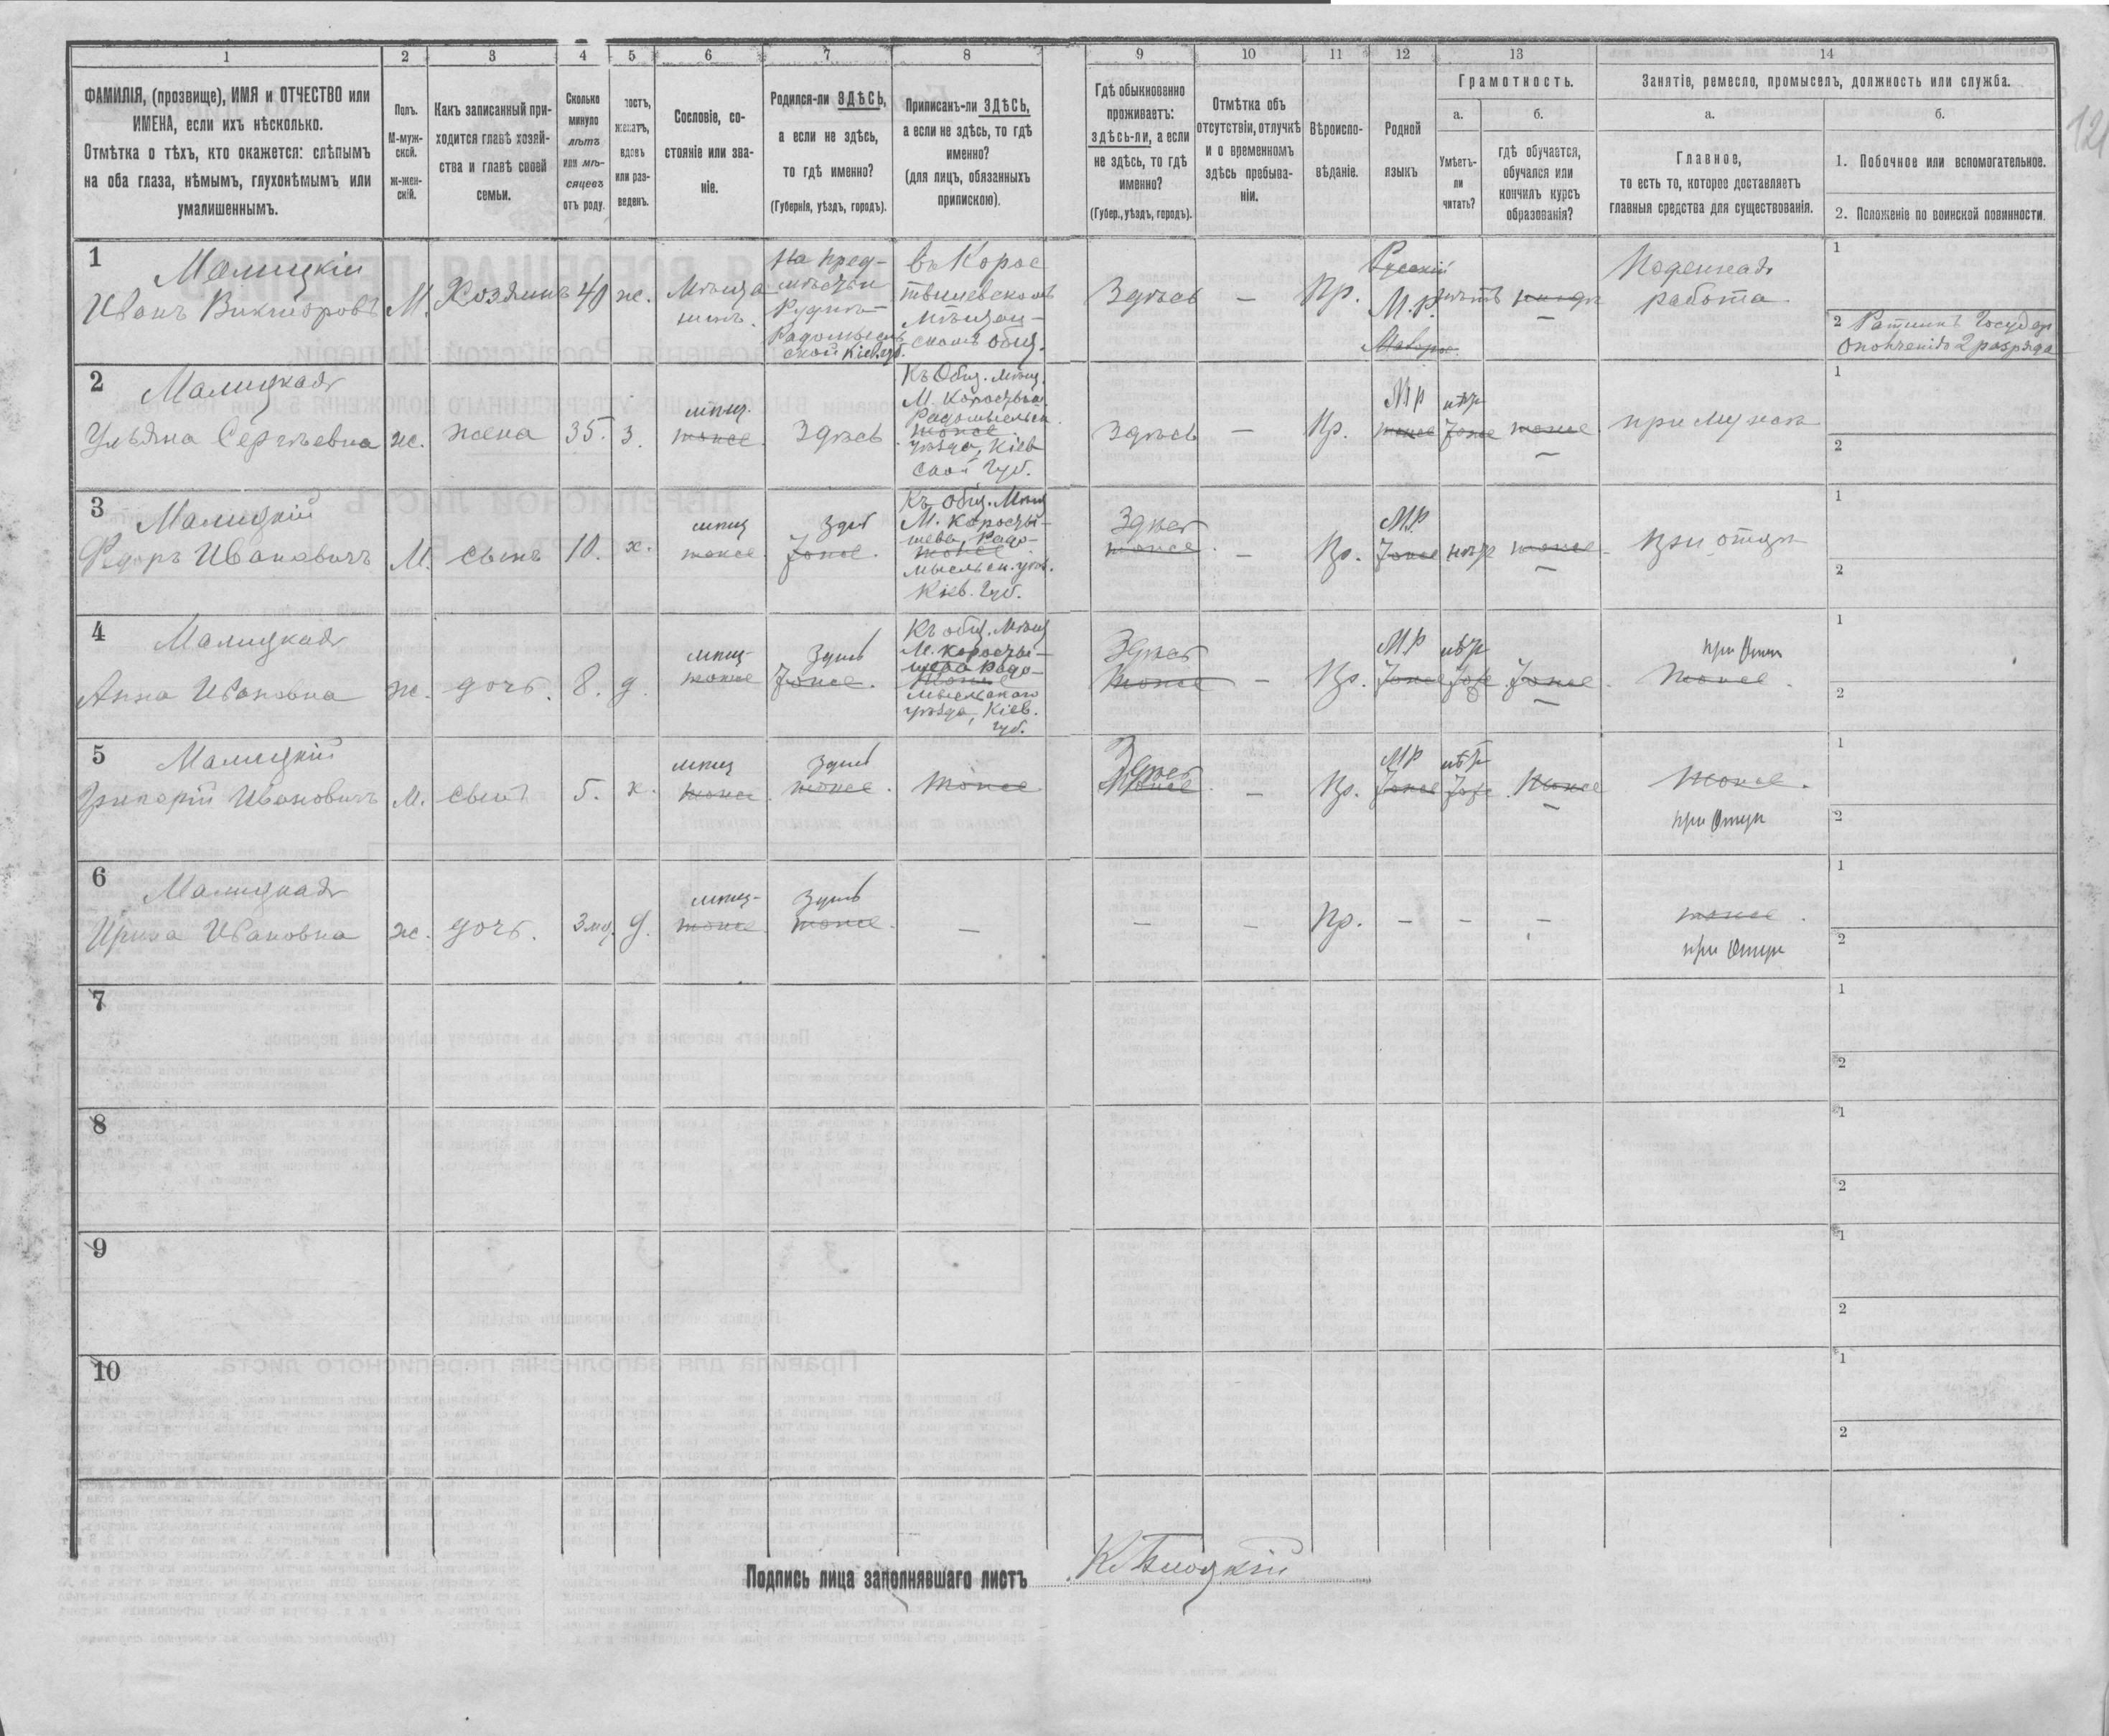 1
2
3
4
5
6
7
8
9
10
11
12
13
14
ФАМИЛІЯ, (прозвище), ИМЯ и ОТЧЕСТВО или
ИМЕНА, если ихъ нѣсколько.
Отмѣтка о тѣхъ, кто окажется: слѣпымъ
на оба глаза, нѣмымъ, глухонѣмымъ или
умалишеннымъ.
Полъ.
М-муж-
ской.
ж-жен-
скій.
Какъ записанный при-
ходится главѣ хозяй-
ства и главѣ своей
семьи.
Сколько
минуло
лѣтъ
или мѣ-
сяцевъ
отъ роду.
тостъ,
женатъ,
вдовъ
или раз-
веденъ.
Сословіе, со-
стояніе или зва-
ніе.
Родился-ли ЗДѢСЬ,
а если не здѣсь,
то гдѣ именно?
(Губернія, уѣздъ, городъ).
Приписанъ-ли ЗДѢСЬ,
а если не здѣсь, то гдѣ
именно?
(для лицъ, обязанныхъ
припискою).
Гдѣ обыкновенно
проживаетъ:
здѣсь-ли, а если
не здѣсь, то гдѣ
именно?
(Губер., уѣздъ, городъ).
Отмѣтка объ
отсутствіи, отлучкѣ
и о временномъ
здѣсь пребыва-
ніи.
Вѣроиспо-
вѣданіе.
Родной
языкъ
Грамотность.
а.
б.
Умѣетъ-
ли
читать?
гдѣ обучается,
обучался или
кончилъ курсъ
образованія?
Занятіе, ремесло, промыселъ, должность или служба.
а.
б.
Главное,
то есть то, которое доставляетъ
главныя средства для существованія.
1. Побочное или вспомогательное.
2. Положеніе по воинской повинности.
1
Малицкій
Иванъ Викторовъ
М.
Хозяинъ
40
ж.
Мѣща
нинъ.
На пред-
мѣстьи
Рудня-
Радомысль
ской Кіев. губ.
въ Корос
тышевскомъ
Мѣщан-
скомъ общ.
Здѣсь
—
Пр.
Русскій
М.Р.
нѣтъ
Поденная
работа
1
2 Ратникъ Государ
Ополченія 2 разряда
2
Малицкая
Ульяна Сергѣевна
ж.
жена
35.
з.
мѣщ.
тоже
Здѣсь
Къ Общ. Мѣщ.
М. Коростыш.
Радомысльск.
тоже
уѣзда, Кіев
ской Губ.
Здѣсь
—
Пр.
МР
тоже
нѣт
тоже
тоже
при мужѣ
1
2
3
Малицкій
Федоръ Ивановичъ
М.
сынъ
10.
х.
мѣщ
тоже
Здѣ
тоже.
Къ общ. Мѣщ
М. Коросты-
шева, Радо-
тоже
мысльск. уѣз.
Кіев. Губ.
Здѣсь
тоже
—
Пр.
М.Р
тоже
нѣт
тоже
при отцѣ
1
2
4
Малицкая
Анна Ивановна
ж.
дочь.
8.
д.
мѣщ-
тоже
Здѣсь
тоже.
Къ общ. Мѣщ
М. Коросты-
шева Радо-
тоже
мысльскаго
уѣзда, Кіев.
Губ.
Здѣсь
тоже
—
Пр.
М.Р
тоже
нѣт
тоже
тоже
при Отцѣ
тоже.
1
2
5
Малицкій
Григорій Ивановичъ
М.
сынъ
5.
х.
мѣщ
тоже
Здѣсь
тоже.
тоже
Здѣсь
тоже
—
Пр.
МР
тоже
нѣт
тоже
тоже
тоже.
при Отцѣ
1
2
6
Малицкая
Ирина Ивановна
ж.
дочь.
3 мѣ.
д.
мѣщ-
тоже
Здѣсь
тоже.
—
—
—
Пр.
—
—
—
тоже.
при Отцѣ
1
2
7
1
2
8
1
2
9
1
2
10
1
2
Подпись лица заполнявшаго листъ